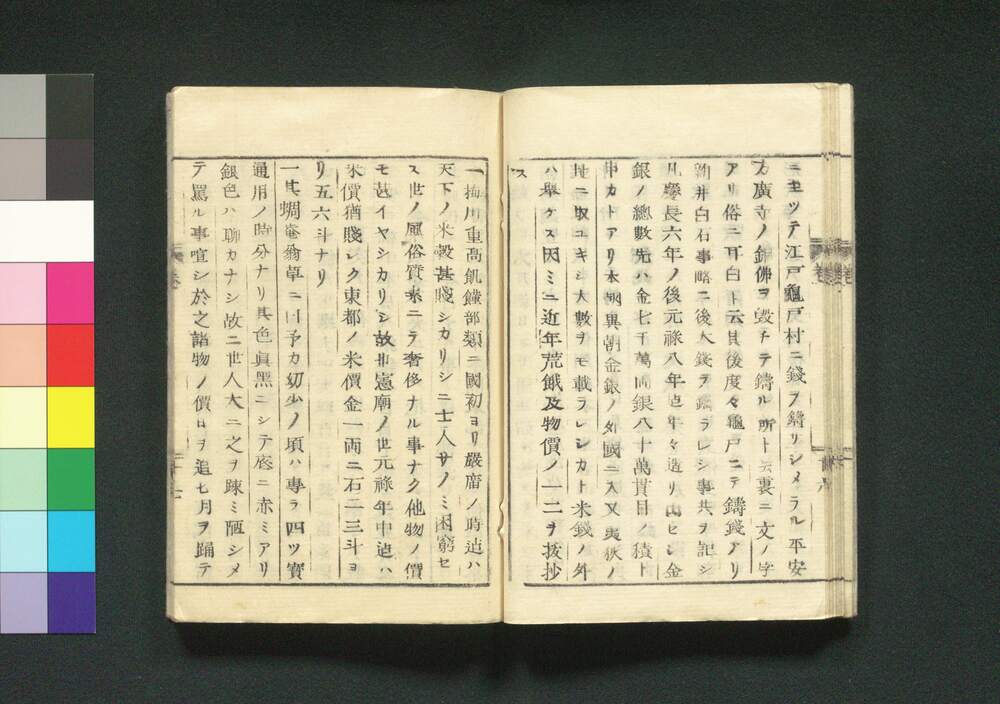 ニ至ツテ江戸龜戸村ニ錢ヲ鑄リシメラル平安
方廣寺ノ銅佛ヲ毀チテ鑄ル所ト云裏ニ文ノ字
アリ俗ニ耳白ト云其後度々龜戸ニテ鑄錢アリ
新井白石事略ニ後大錢ヲ鑄ラレシ事共ヲ記シ
凡慶長六年ノ後元祿八年迠年々造リ出セシ金
銀ノ總數先ハ金七千萬両銀八十萬貫目ノ積ト
申カトアリ本朝異朝金銀ノ外國ニ入又夷狄ノ
地ニ取ユキシ大數ヲモ載ラレシカト米錢ノ外
ハ擧ケス因ミニ近年荒餓及物價ノ一二ヲ抜抄
ス
一 川重高飢饉部類ニ國初ヨリ嚴廟ノ時迠ハ
天下ノ米穀甚賤シカリシニ士人サノミ困窮セ
ス世ノ風俗質素ニテ奢侈ナル事ナク他物ノ價
モ甚イヤシカリシ故也憲廟ノ世元祿年中迠ハ
米價猶賤シク東都ノ米價金一両ニ石二三斗ヨ
リ五六斗ナリ
一其蜩菴翁草ニ曰予カ幼少ノ頃ハ専ラ四ツ寳
通用ノ時分ナリ其色眞黑ニシテ底ニ赤ミアリ
銀色ハ聊カナシ故ニ世人大ニ之ヲ疎ミ陋シメ
テ罵ル事喧シ於之諸物ノ價日ヲ追七月ヲ踊テ